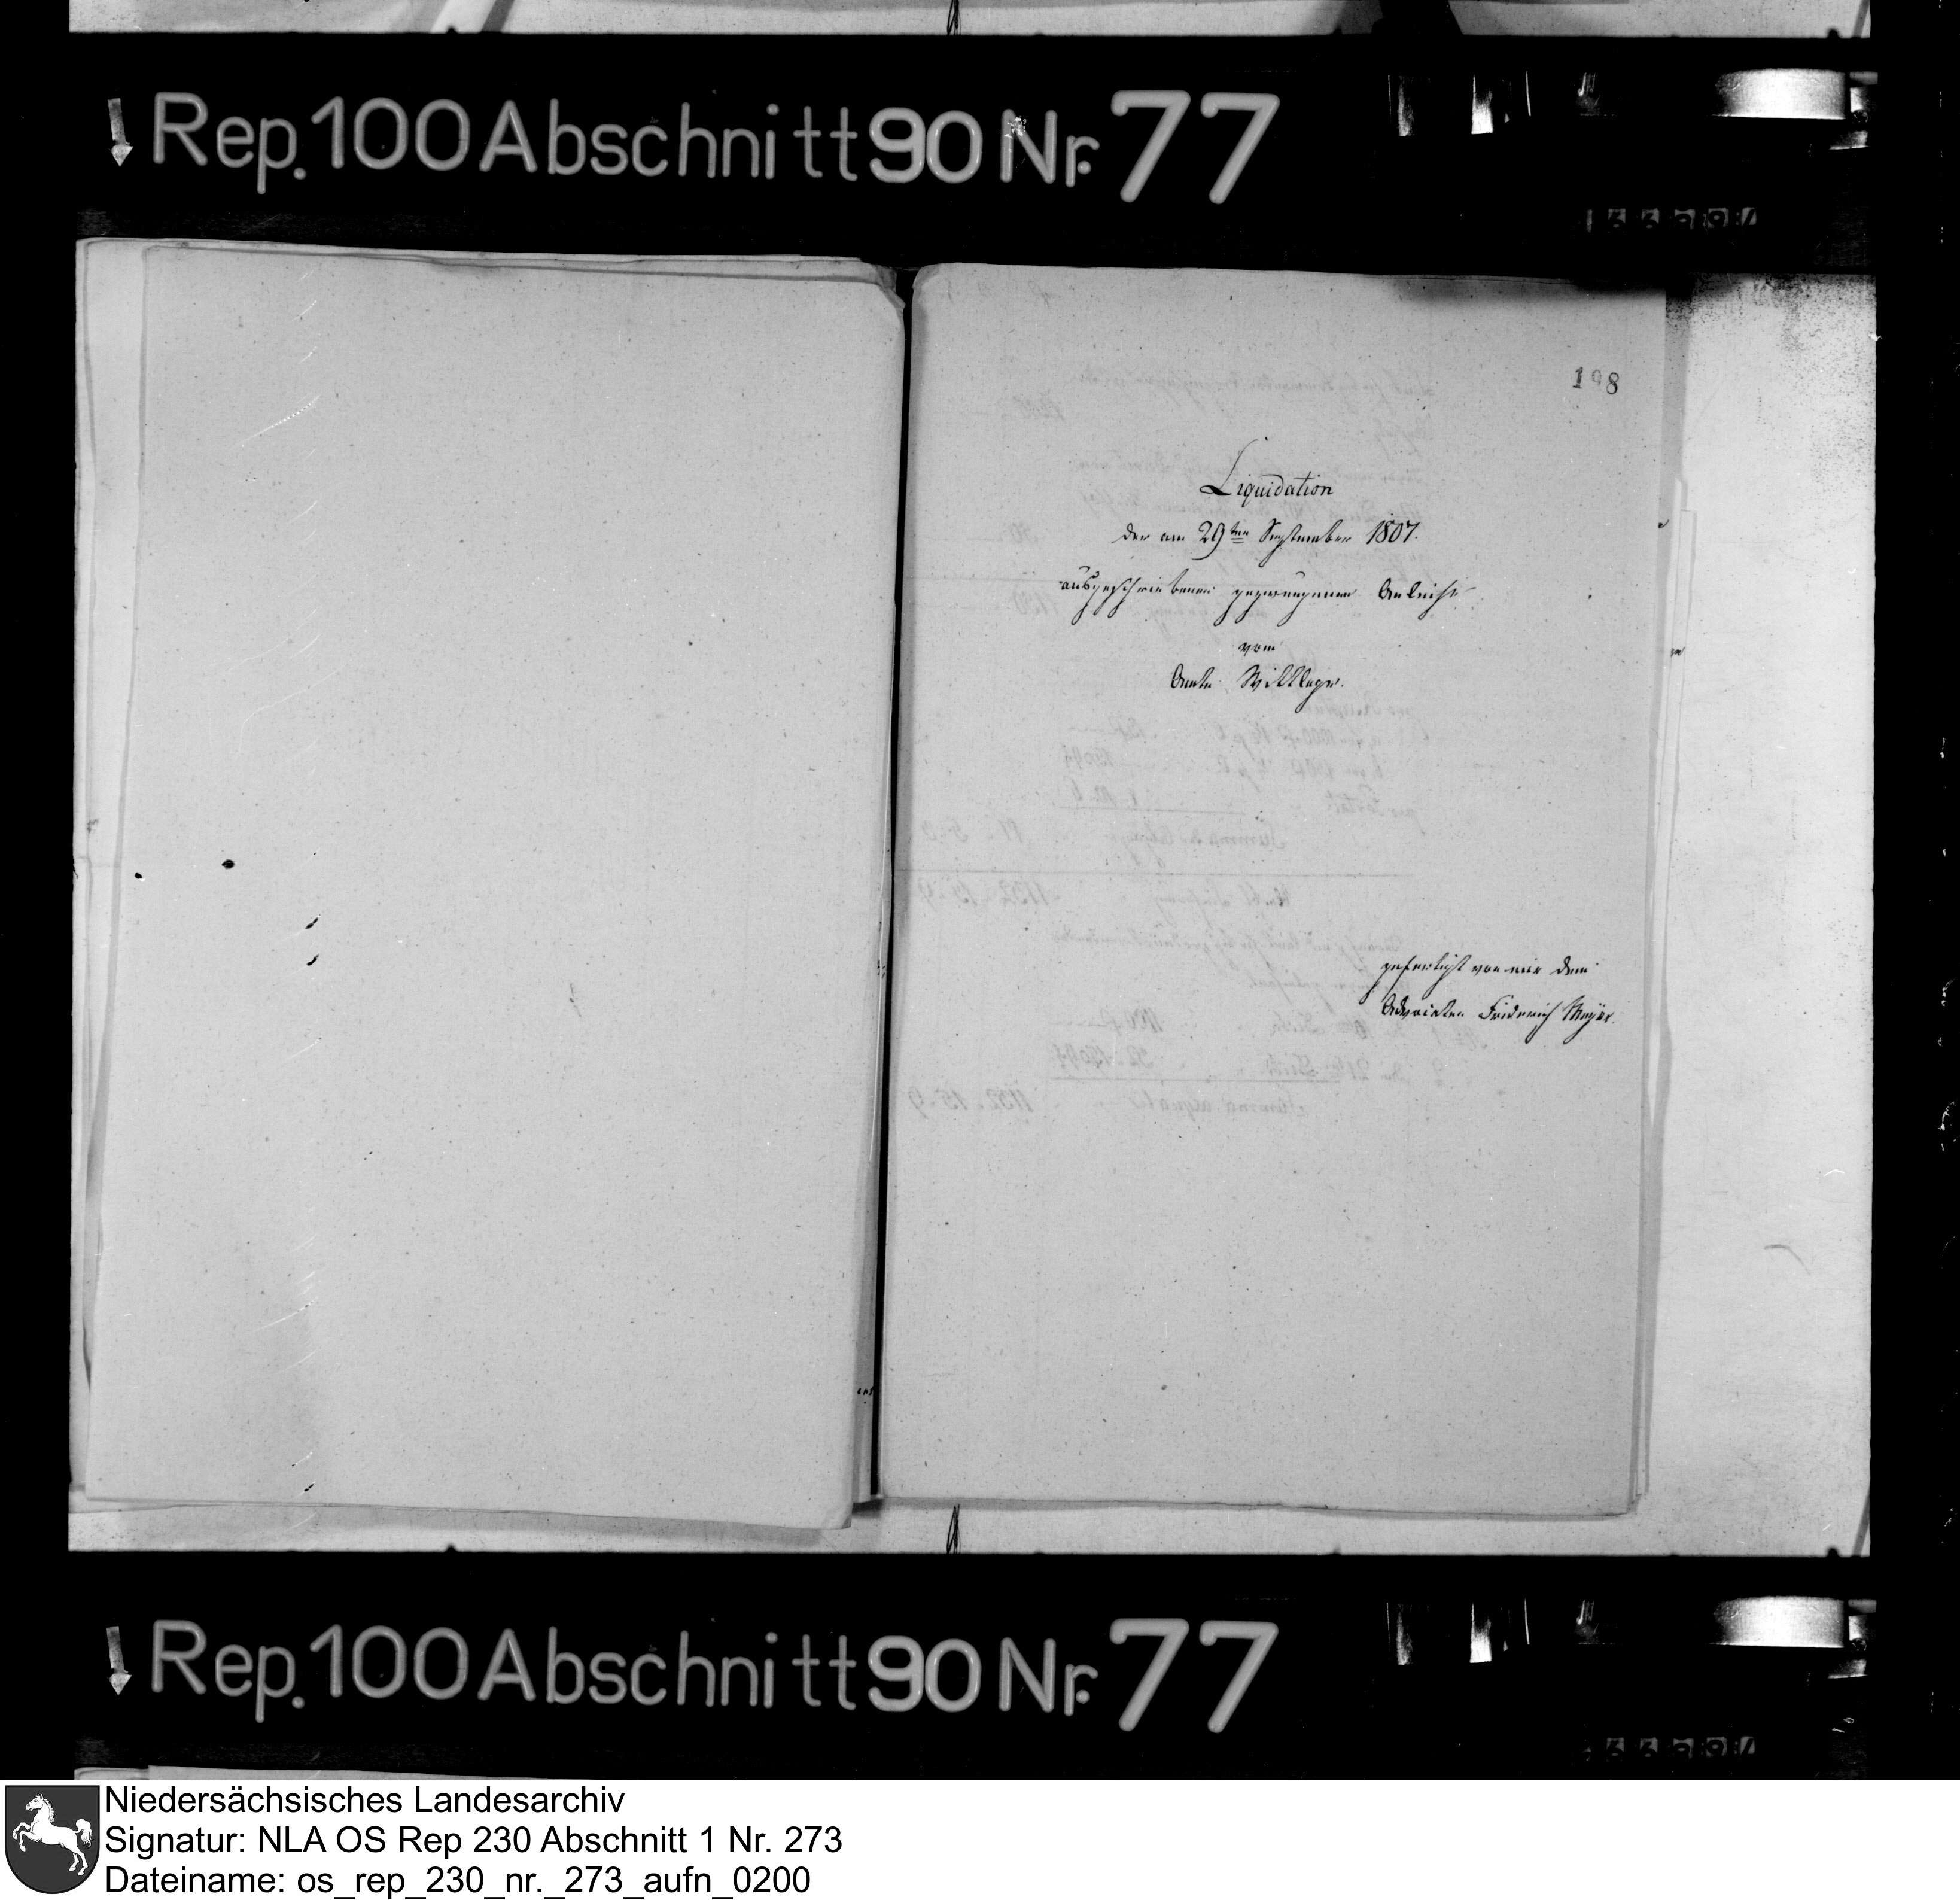 Rep. 100 Abschnitt 90 Nr. 77
198
Liquidation
der am 29ten September 1807.
ausgeschriebenen gezwungenen Anleihe
vom
Amte Wittlage.
gefertigt von mir dem
Advocaten Friderich Meyer.
Rep. 100 Abschnitt 90 Nr. 77
Niedersächsisches Landesarchiv
Signatur: NLA OS Rep 230 Abschnitt 1 Nr. 273
Dateiname: os_rep_230_nr._273_aufn_0200